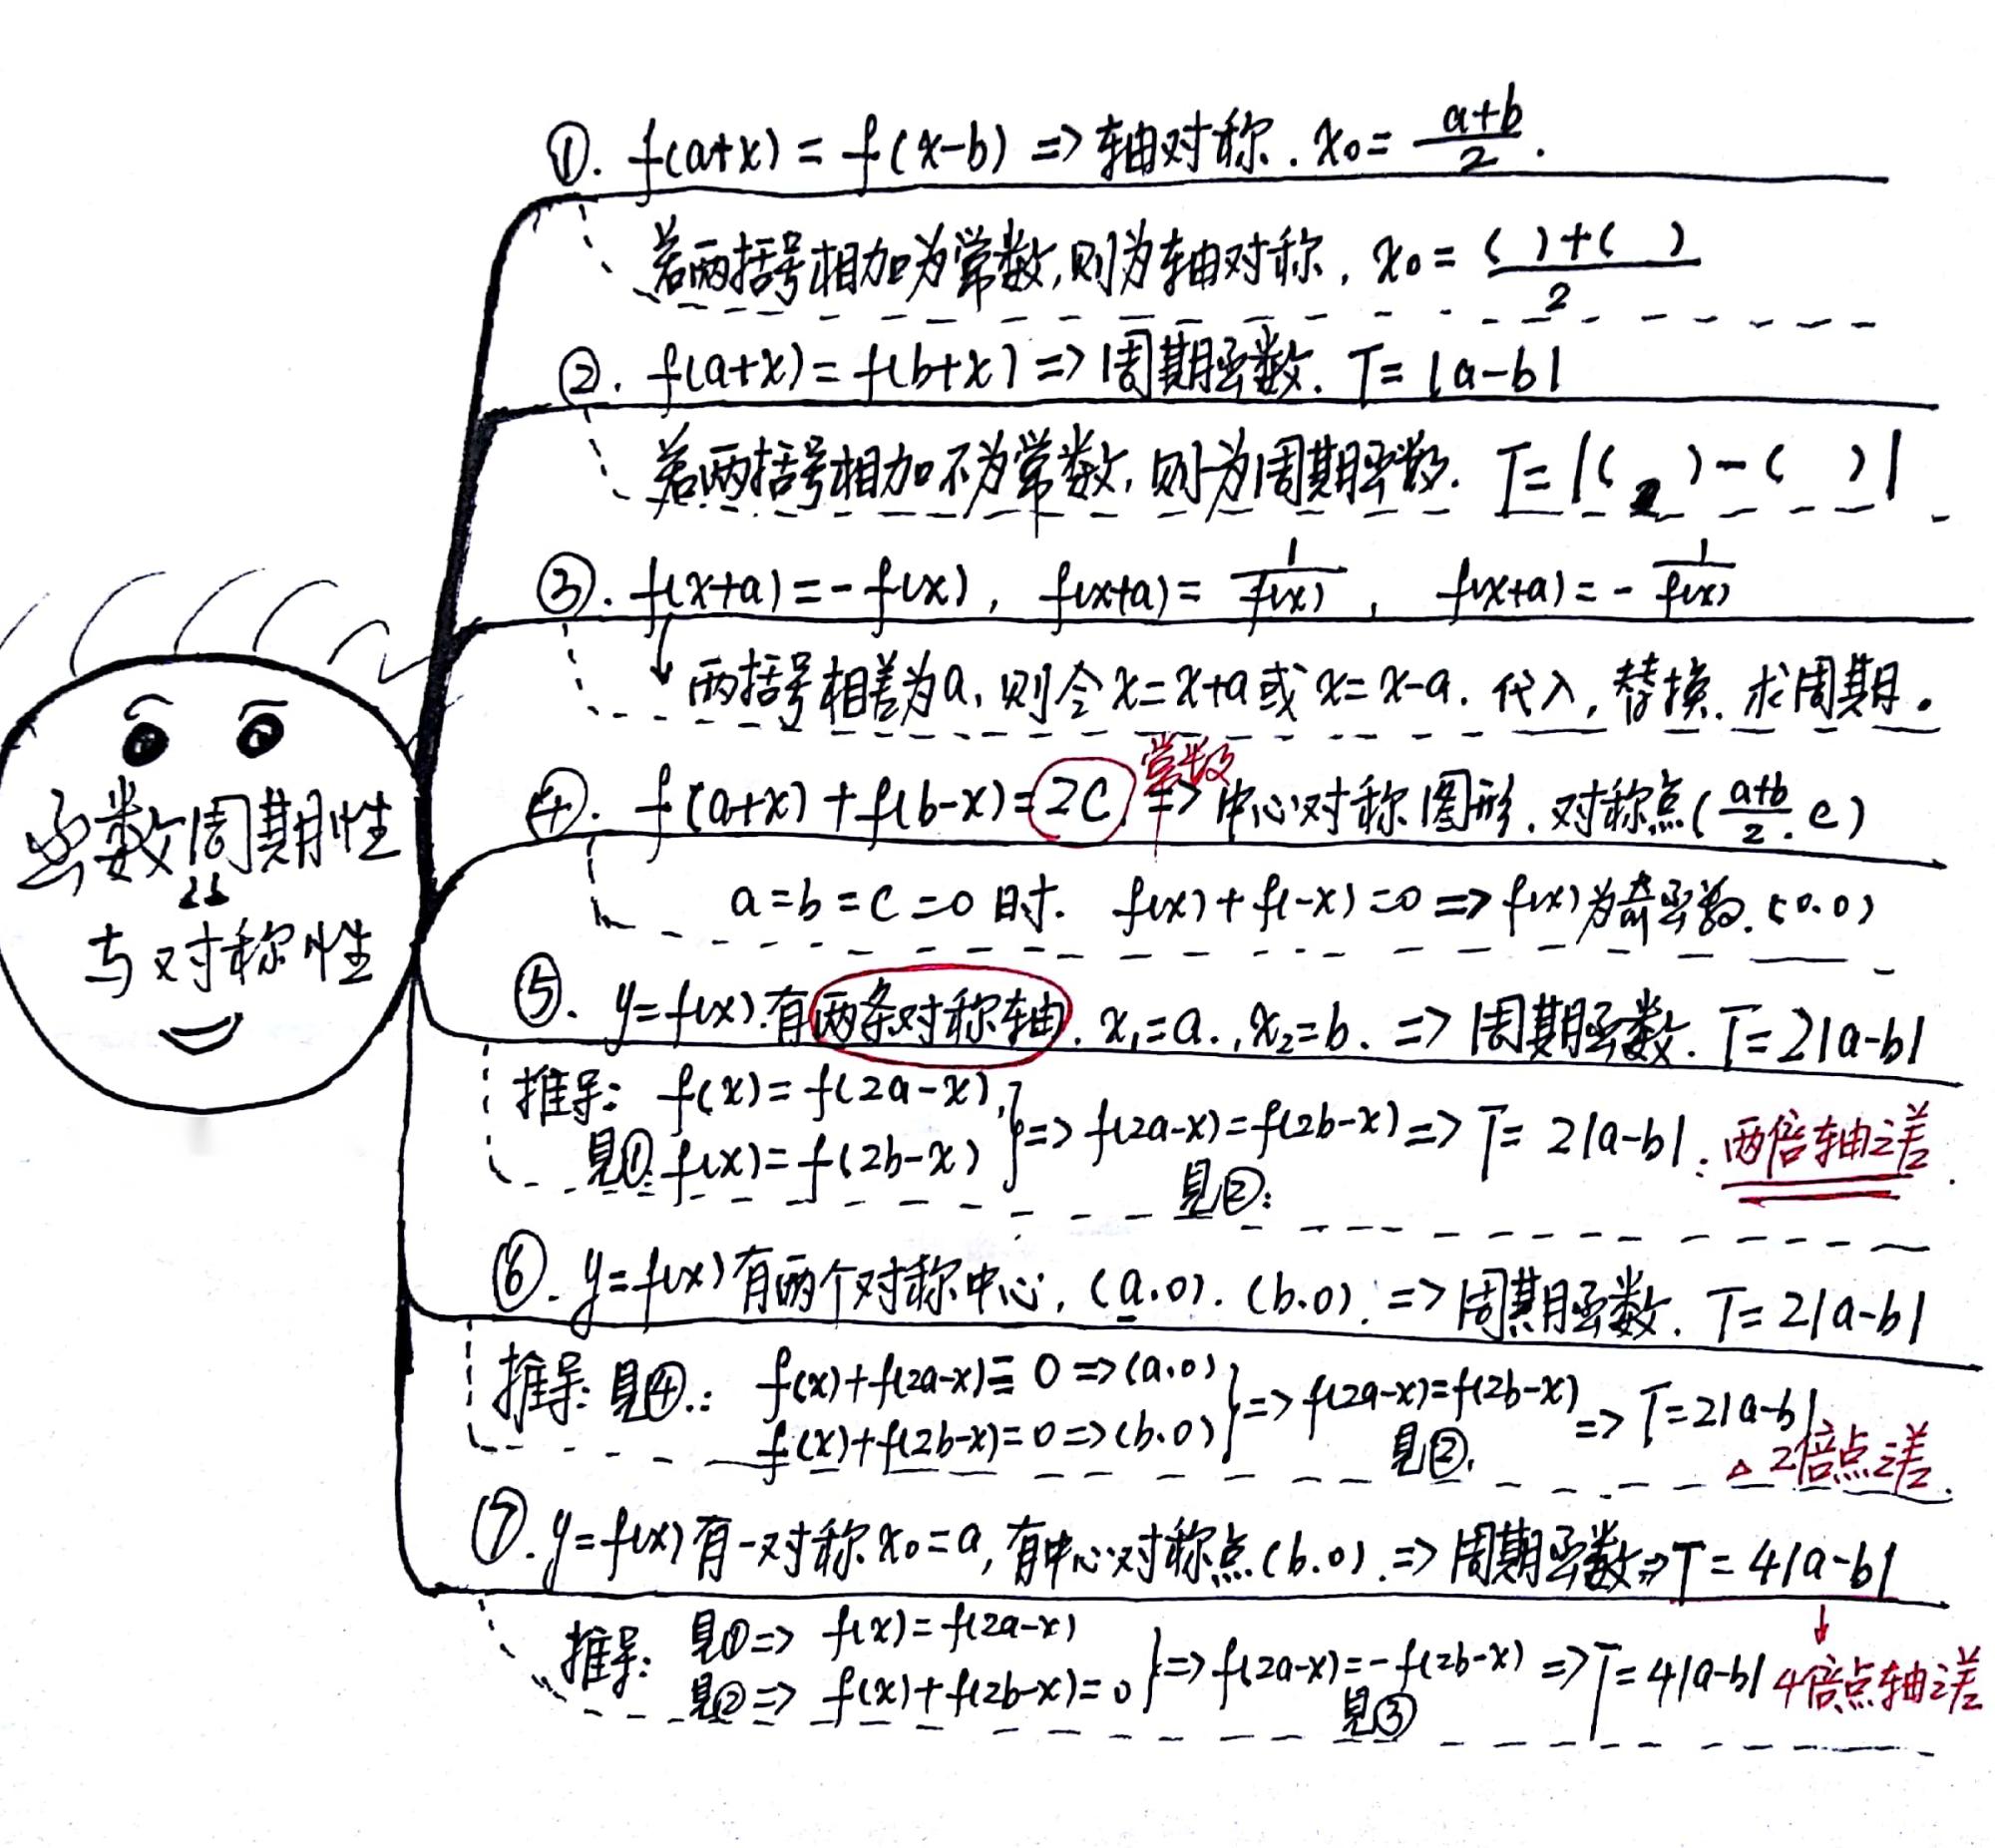 ①. f(a+x) = f(x-b) => 轴对称. x₀ = (a+b)/2.
若两括号相加为常数,则为轴对称, x₀ = (( )+( ))/2
②. f(a+x) = f(b+x) => 周期函数. T = |a-b|
若两括号相加不为常数, 则为周期函数. T = |( )-( )|
③. f(x+a) = -f(x), f(x+a) = 1/f(x), f(x+a) = -1/f(x)
↓ 两括号相差为a, 则令x=x+a或x=x-a. 代入, 替换. 求周期。
常数
④. f(a+x)+f(b-x)=2C => 中心对称图形. 对称点((a+b)/2.c)
a=b=c=0 时. f(x)+f(-x)=0 => f(x)为奇函数. (0.0)
函数周期性
与对称性
⑤. y=f(x).有两条对称轴. x₁=a., x₂=b. => 周期函数. T=2|a-b|
推导: f(x)=f(2a-x),
見① f(x)=f(2b-x) } => f(2a-x)=f(2b-x) => T= 2|a-b|. 两倍轴之差.
見②:
⑥. y=f(x)有两个对称中心, (a.0). (b.0). => 周期函数. T=2|a-b|
推导: 見④.: f(x)+f(2a-x)= 0 => (a.0)
f(x)+f(2b-x)=0 => (b.0) } => f(2a-x)=f(2b-x) => T=2|a-b|
見②. △ 2倍点之差.
⑦. y=f(x)有一对称x₀=a, 有中心对称点(b.0). => 周期函数 => T=4|a-b|
推导: 見①=> f(x)=f(2a-x)
見②=> f(x)+f(2b-x)=0 } => f(2a-x)=-f(2b-x) => T=4|a-b| 4倍点轴之差
見③